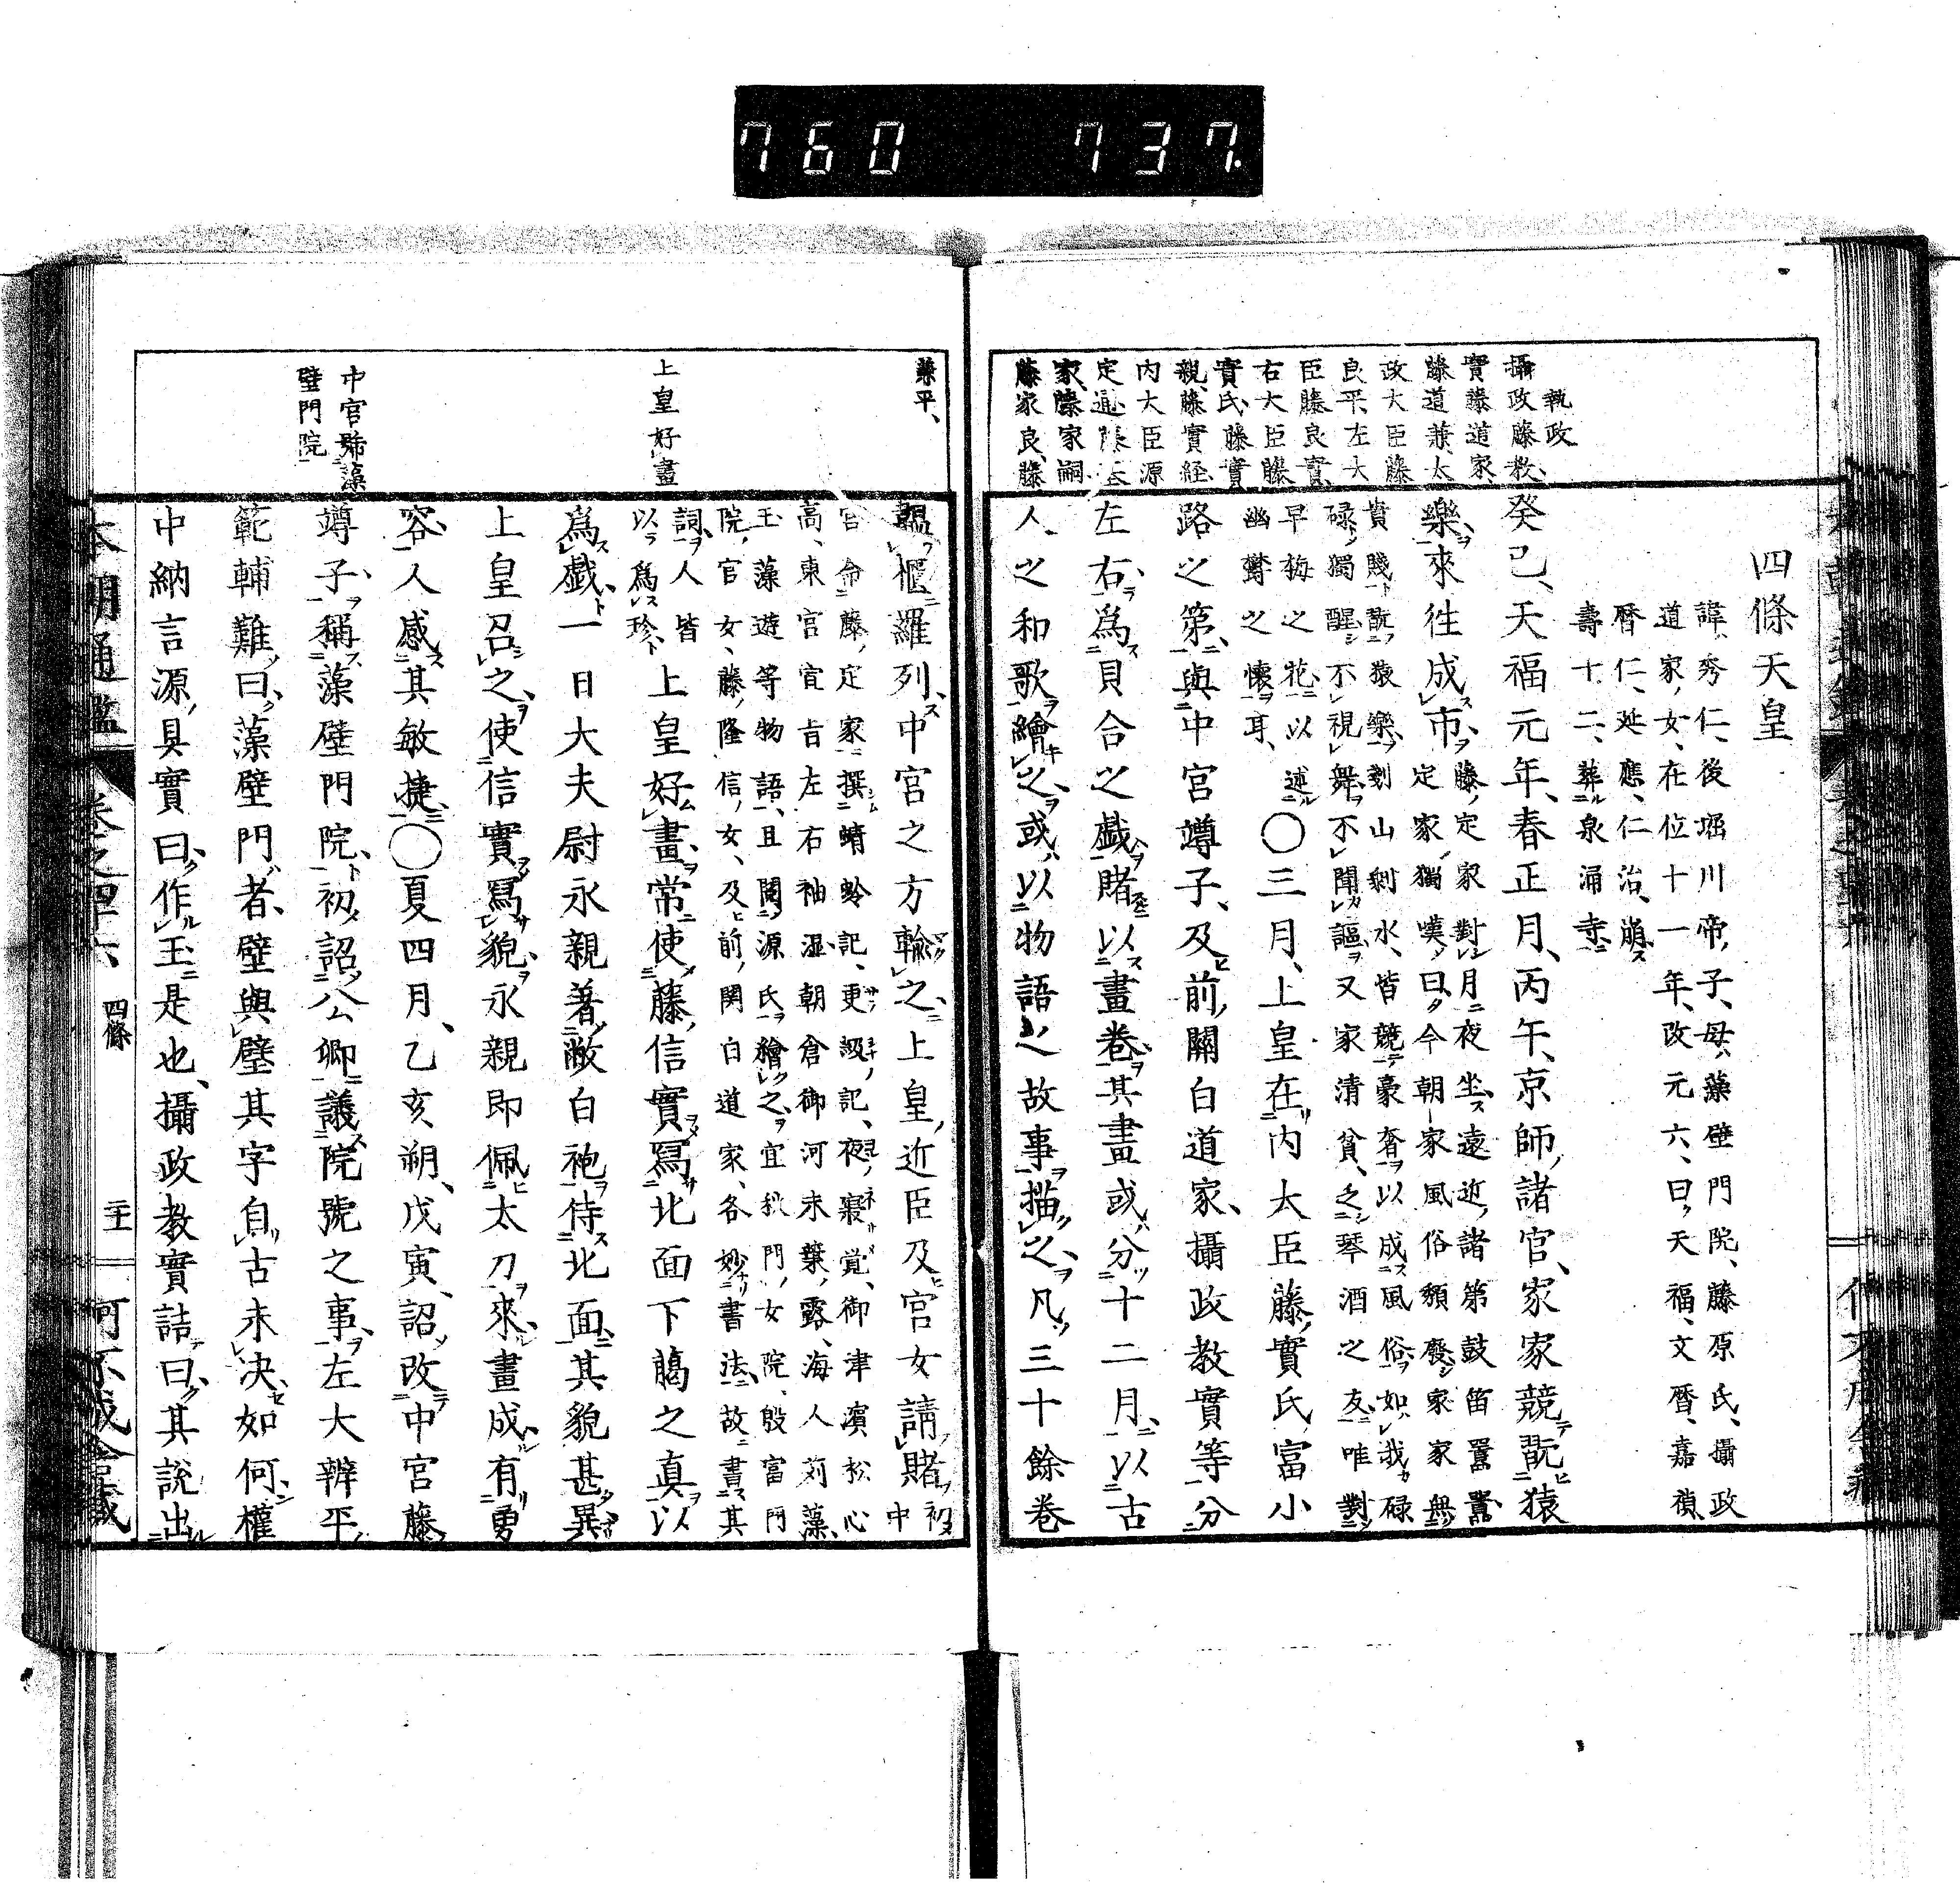 760 737.
執政
攝政藤教
實藤道家
藤道兼太
政大臣藤
良平左大
臣藤良實
右大臣藤
實氏藤實
親藤實経
内大臣源
定通
家藤家嗣
藤家良藤
四條天皇
諱秀仁後堀川帝子母藻壁門院藤原氏攝政
道家女在位十一年改元六曰天福文曆嘉禎
曆仁延應仁治崩
壽十二葬泉涌寺
癸巳天福元年春正月丙午京師諸官家家競翫猿
樂來徃成市
藤定家對月夜坐遠近諸第鼓笛
定家獨嘆曰今朝家風俗頽廢家家無
貴賤翫猿樂剗山剩水皆競豪奢以成風俗如我碌
碌獨醒不視舞不聞謳又家清貧乏琴酒之友唯對
早梅之花以述
幽鬱之懷耳
〇三月上皇在内大臣藤實氏富小
路之第與中宮竴子及前關白道家攝政教實等分
左右為貝合之戯賭以畫卷其畫或分十二月以古
人之和歌繪之或以物語之故事描之凡三十餘卷
兼平
韞櫃羅列中宮之方輸之上皇近臣及官女請賭
初中
宮命藤定家撰蜻蛉記更級記夜寢覚御津濱松心
高東宮宣旨左右袖湿朝倉御河未葉露海人苅藻
玉藻遊等物語且関源氏繪之宜秋門女院殷富門
院官女藤隆信女及前関白道家各妙書法故書其
詞人皆
以為珍
上皇好畫
上皇好畫常使藤信實寫北面下臈之真以
為戯一日大夫尉永親著敝白袍侍北面其貌甚異
上皇召之使信實寫貌永親即佩太刀來畫成有勇
容人感其敏捷〇夏四月乙亥朔戊寅詔改中宮藤
中宮號藻
璧門院
竴子稱藻璧門院初詔公卿議院號之事左大辨平
範輔難曰藻壁門者壁與璧其字自古未决如何權
中納言源具實曰作玉是也攝政教實詰曰其說出
本朝通鑑 卷之四十六 四條